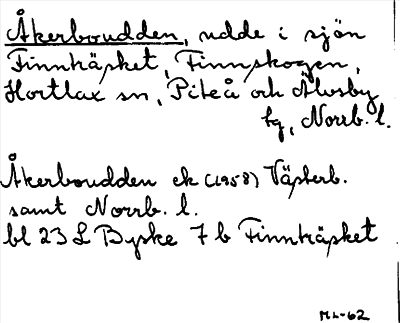 Åkerboudden, udde i sjön
Finnträsket, Finnskogen,
Hortlax sn, Piteå och Älvsby
tg, Norrb. l.
Åkerboudden ek (1958) Västerb.
samt Norrb. l.
bl 23 L Byske 7 b Finnträsket
ML-62